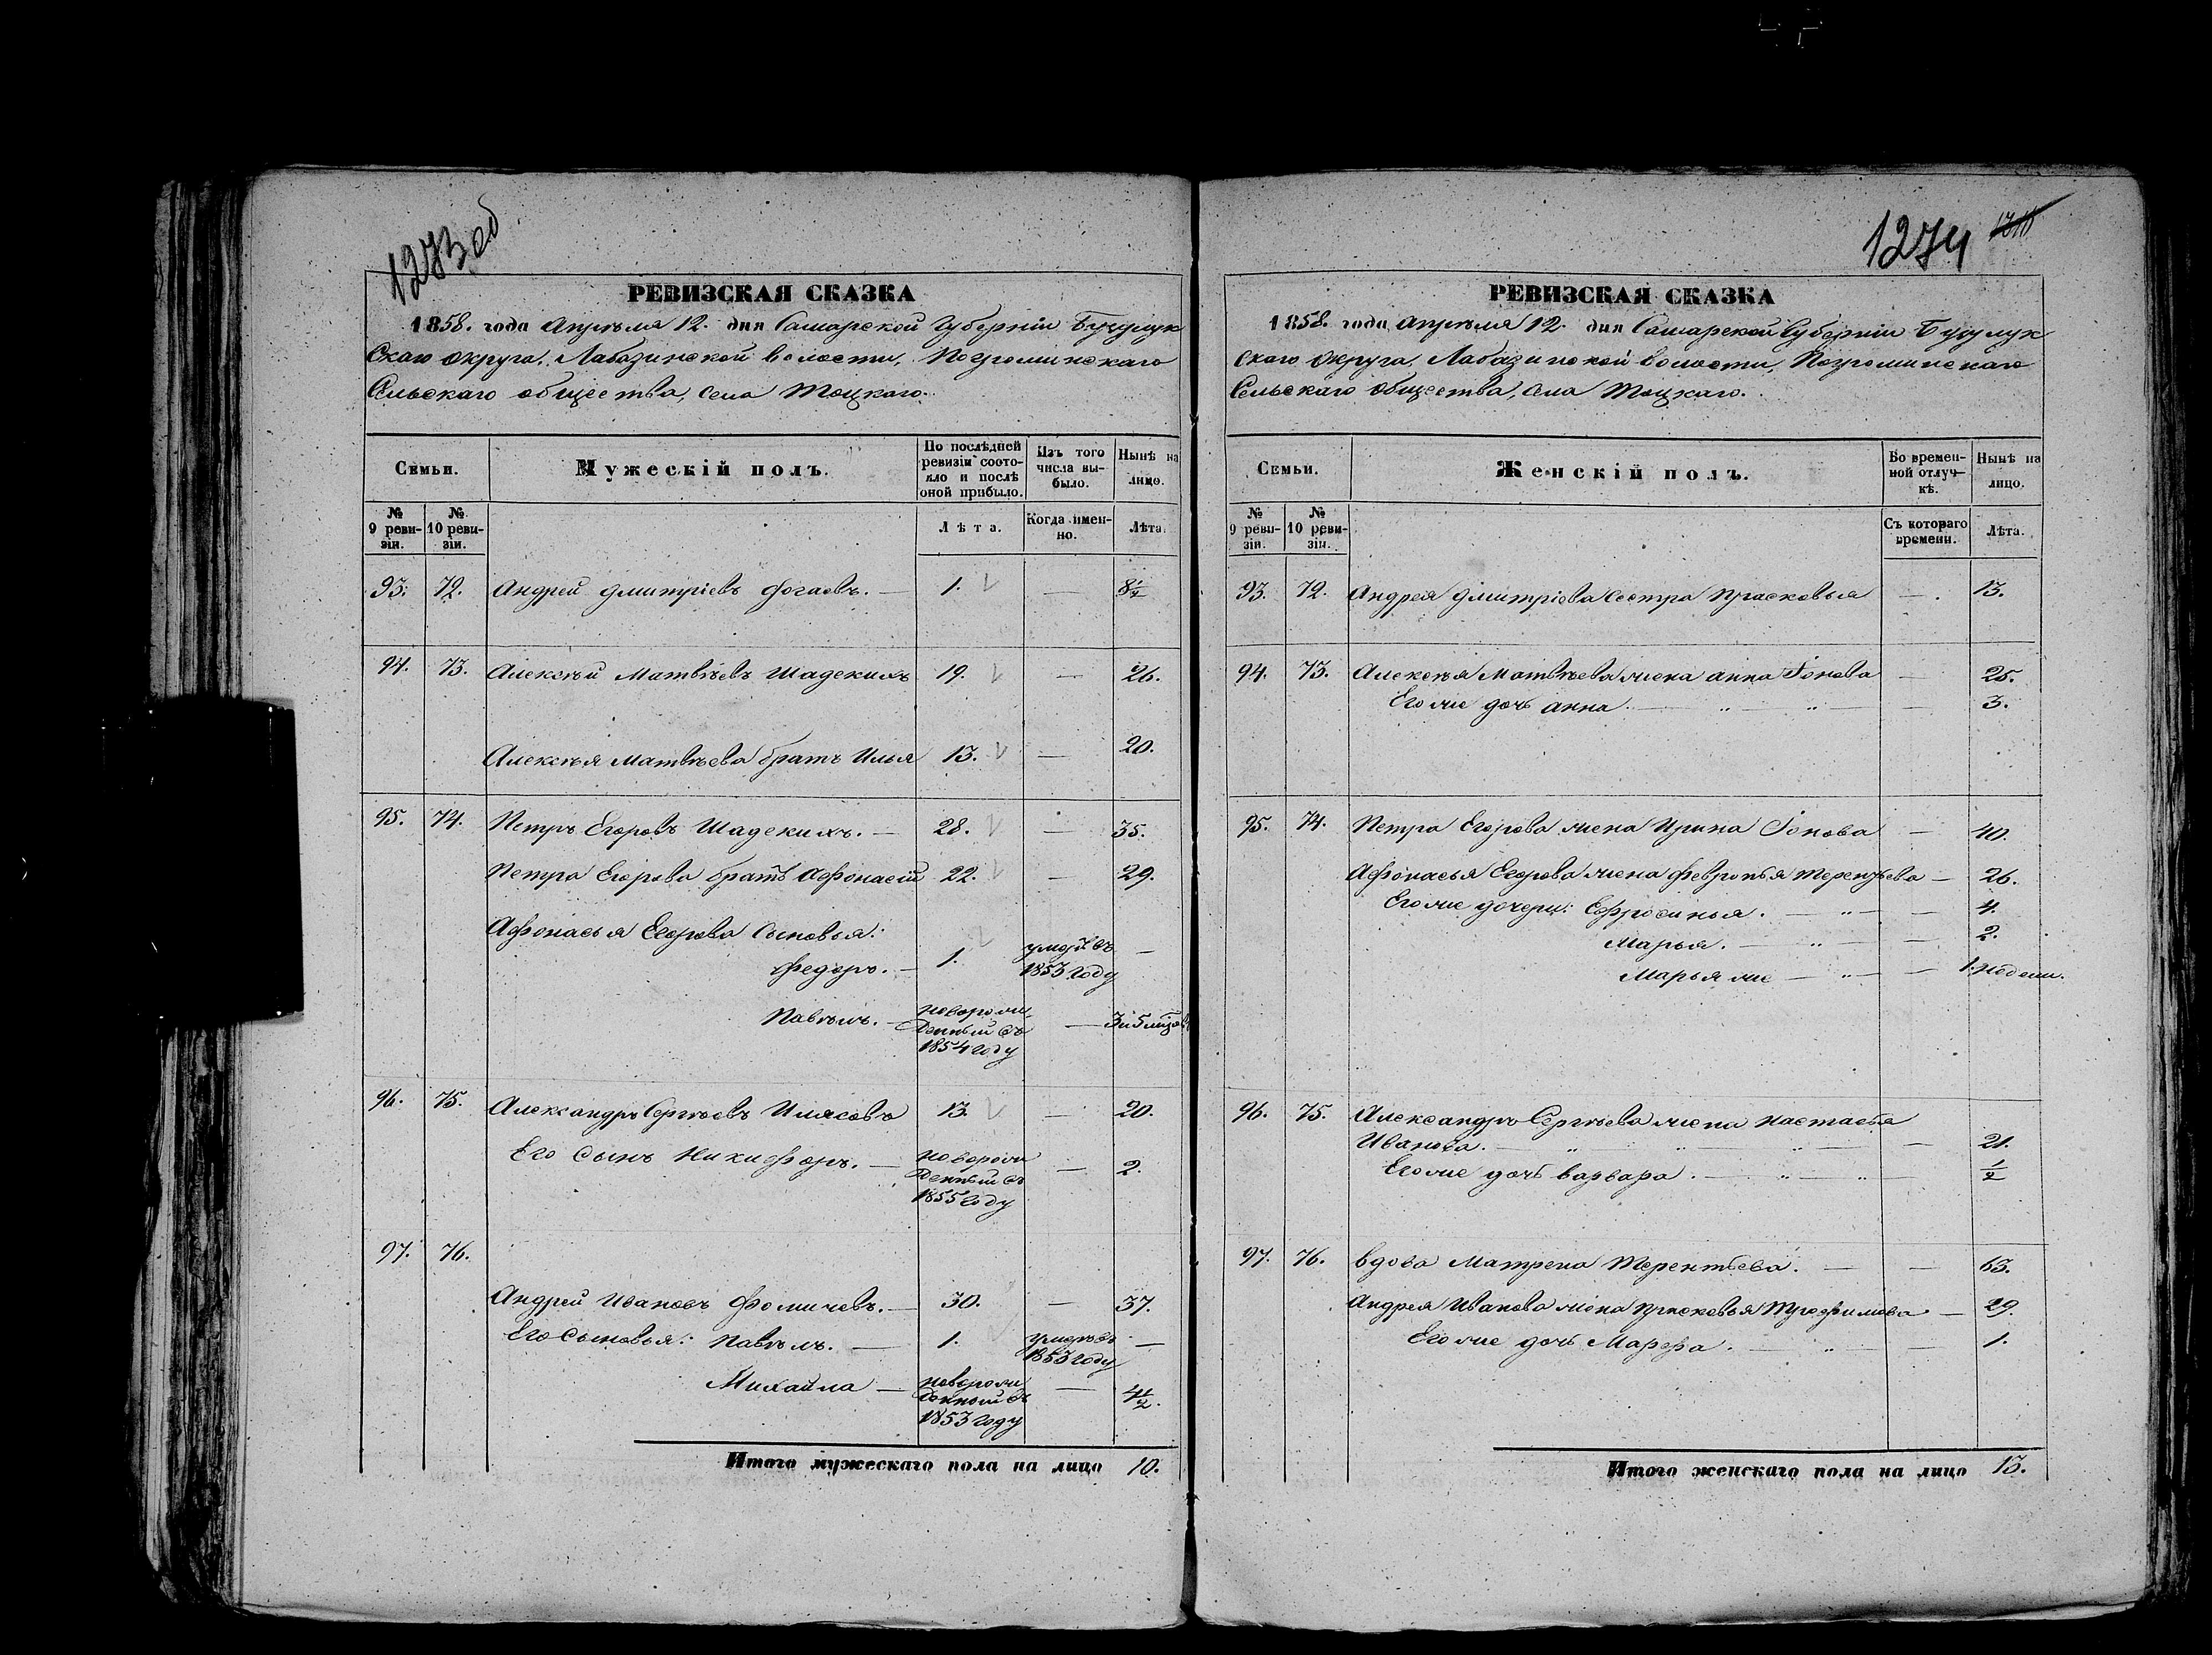 1273 об
РЕВИЗСКАЯ СКАЗКА
1858. года Апрѣля 12. дня Самарской Губерніи Бузулук
скаго округа, Лабазинской волости, Погроминскаго
Сельскаго общества, села Тоцкаго.
Семьи.
Мужескій полъ.
По послѣдней ревизіи состо-
яло и послѣ оной прибыло.
Изъ того числа вы-
было.
Нынѣ на лицо.
№ 9 реви-
зіи.
№ 10 реви-
зіи.
Лѣта.
Когда имен-
но.
Лѣта.
93. 72. Андрей Дмитріевъ — 1. — 8½
94. 73. Алексѣй Матвѣевъ Шадскихъ 19. — 26.
Алексѣя Матвѣева братъ Илья 13. — 20.
95. 74. Петръ Егоровъ Шадскихъ. — 28. — 35.
Петра Егорова братъ Афонасій 22. — 29.
Афонасья Егорова сыновья:
Федоръ. — 1. умеръ въ 1853 году —
Павѣлъ. — новорожденный въ 1854 году — 3 и 5 мѣцовъ
96. 75. Александръ Сергѣевъ Илясовъ 13. — 20.
Его сынъ Никифоръ. — новорожденный въ 1855 году — 2.
97. 76.
Андрей Ивановъ Фомичевъ. — 30. — 37.
Его сыновья: Павѣлъ. — 1. умеръ въ 1853 году —
Михайла — новорожденный въ 1853 году — 4½.
Итого мужескаго пола на лицо 10.
1274
РЕВИЗСКАЯ СКАЗКА
1858. года Апрѣля 12. дня Самарской Губерніи Бузулук
скаго округа, Лабазинской волости, Погроминскаго
Сельскаго общества, села Тоцкаго.
Семьи.
Женскій полъ.
Во времен-
ной отлуч-
кѣ.
Нынѣ на лицо.
№ 9 реви-
зіи.
№ 10 реви-
зіи.
Съ котораго времени.
Лѣта.
93. 72. Андрея Дмитріева сестра Прасковья — 13.
94. 73. Алексѣя Матвѣева жена Анна Іонова — 25.
Его же дочь Анна. — 3.
95. 74. Петра Егорова жена Ирина Іонова — 40.
Афонасья Егорова жена Февронья Терентьева — 26.
Его же дочери: Ефросинья. — 4.
Марья. — 2.
Марья же — 1. недели.
96. 75. Александръ Сергѣева жена Настасья
Иванова. — 21.
Его же дочь Варвара. — ½
97. 76. Вдова Матрена Терентьева. — 63.
Андрея Иванова жена Прасковья Трофимова — 29.
Его же дочь Марфа. — 1.
Итого женскаго пола на лицо 13.